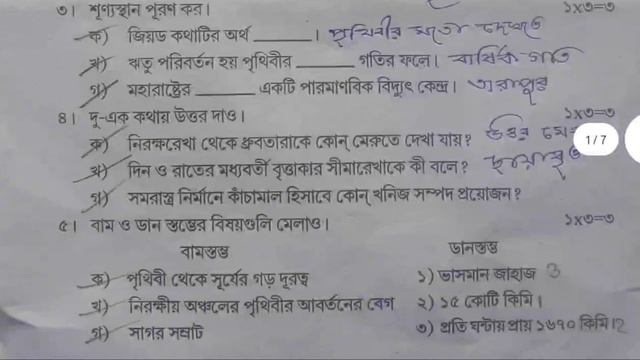 ৩। শূণ্যস্থান পূরণ কর। ১X৩=৩
ক) জিয়ড কথাটির অর্থ ______। পৃথিবীর মতো দেখতে
খ) ঋতু পরিবর্তন হয় পৃথিবীর ______ গতির ফলে। বার্ষিক গতি
গ) মহারাষ্ট্রের ______ একটি পারমাণবিক বিদ্যুৎ কেন্দ্র। তারাপুর
৪। দু-এক কথায় উত্তর দাও। ১X৩=৩
ক) নিরক্ষরেখা থেকে ধ্রুবতারাকে কোন্ মেরুতে দেখা যায়? উত্তর মে
1/7
খ) দিন ও রাতের মধ্যবর্তী বৃত্তাকার সীমারেখাকে কী বলে? ছায়াবৃত্ত
গ) সমরাস্ত্র নির্মানে কাঁচামাল হিসাবে কোন্ খনিজ সম্পদ প্রয়োজন?
৫। বাম ও ডান স্তম্ভের বিষয়গুলি মেলাও। ১X৩=৩
বামস্তম্ভ ডানস্তম্ভ
ক) পৃথিবী থেকে সূর্যের গড় দূরত্ব ১) ভাসমান জাহাজ 3
খ) নিরক্ষীয় অঞ্চলের পৃথিবীর আবর্তনের বেগ ২) ১৫ কোটি কিমি।
গ) সাগর সম্রাট ৩) প্রতি ঘন্টায় প্রায় ১৬৭০ কিমি। 2